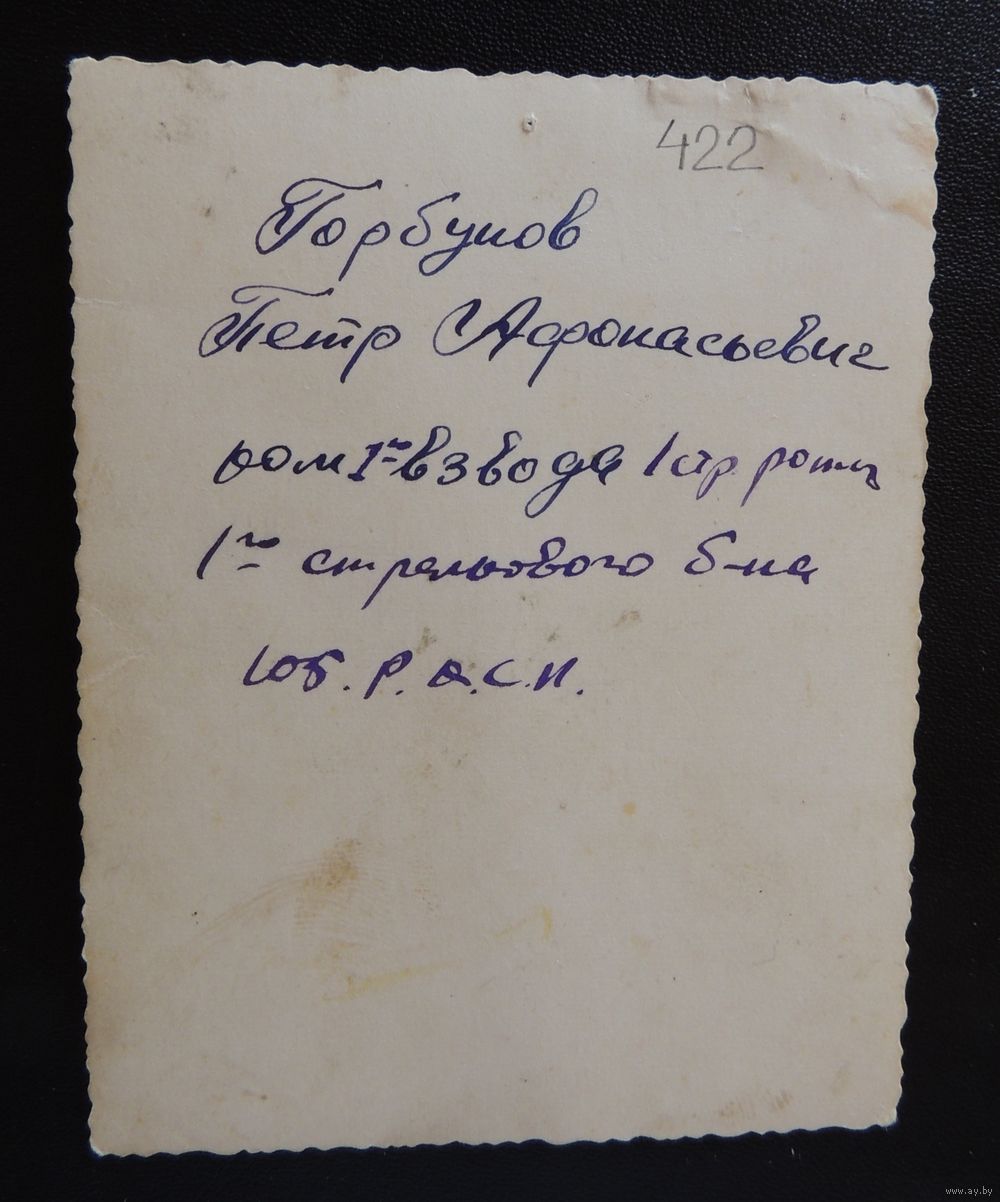 422
Горбунов
Петр Афонасьевич
ком 1го взвода 1 стр. роты
1го стрелкового б-на
www.ay.by